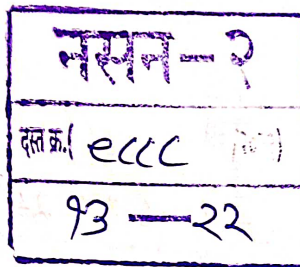 नसन-२
दस्त क्र.( ९८८८ )
१३ — २२